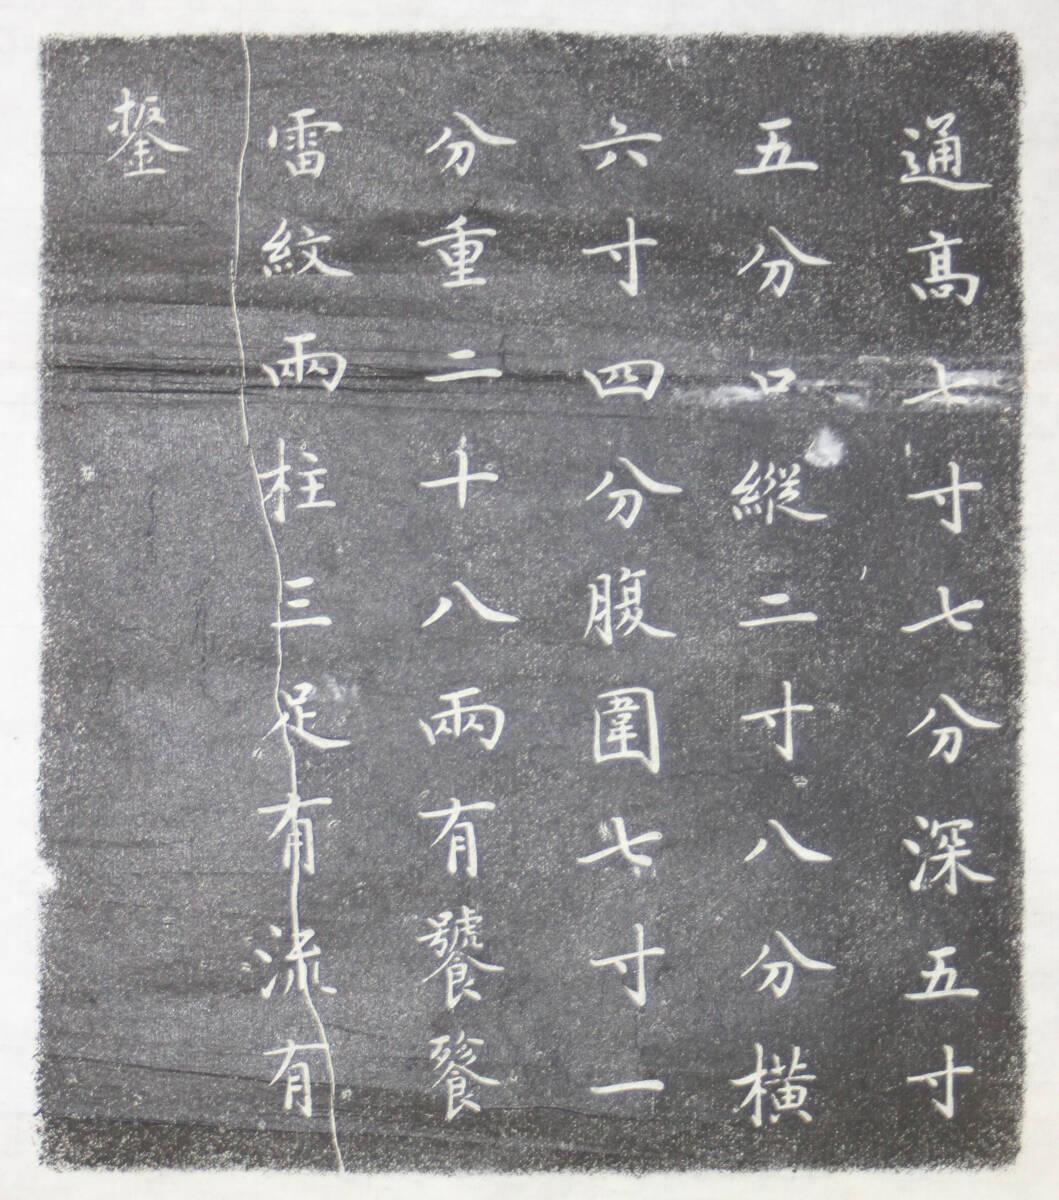 通高七寸七分深五寸
五分口縱二寸八分橫
六寸四分腹圍七寸一
分重二十八兩有饕餮
雷紋兩柱三足有流有
鋬